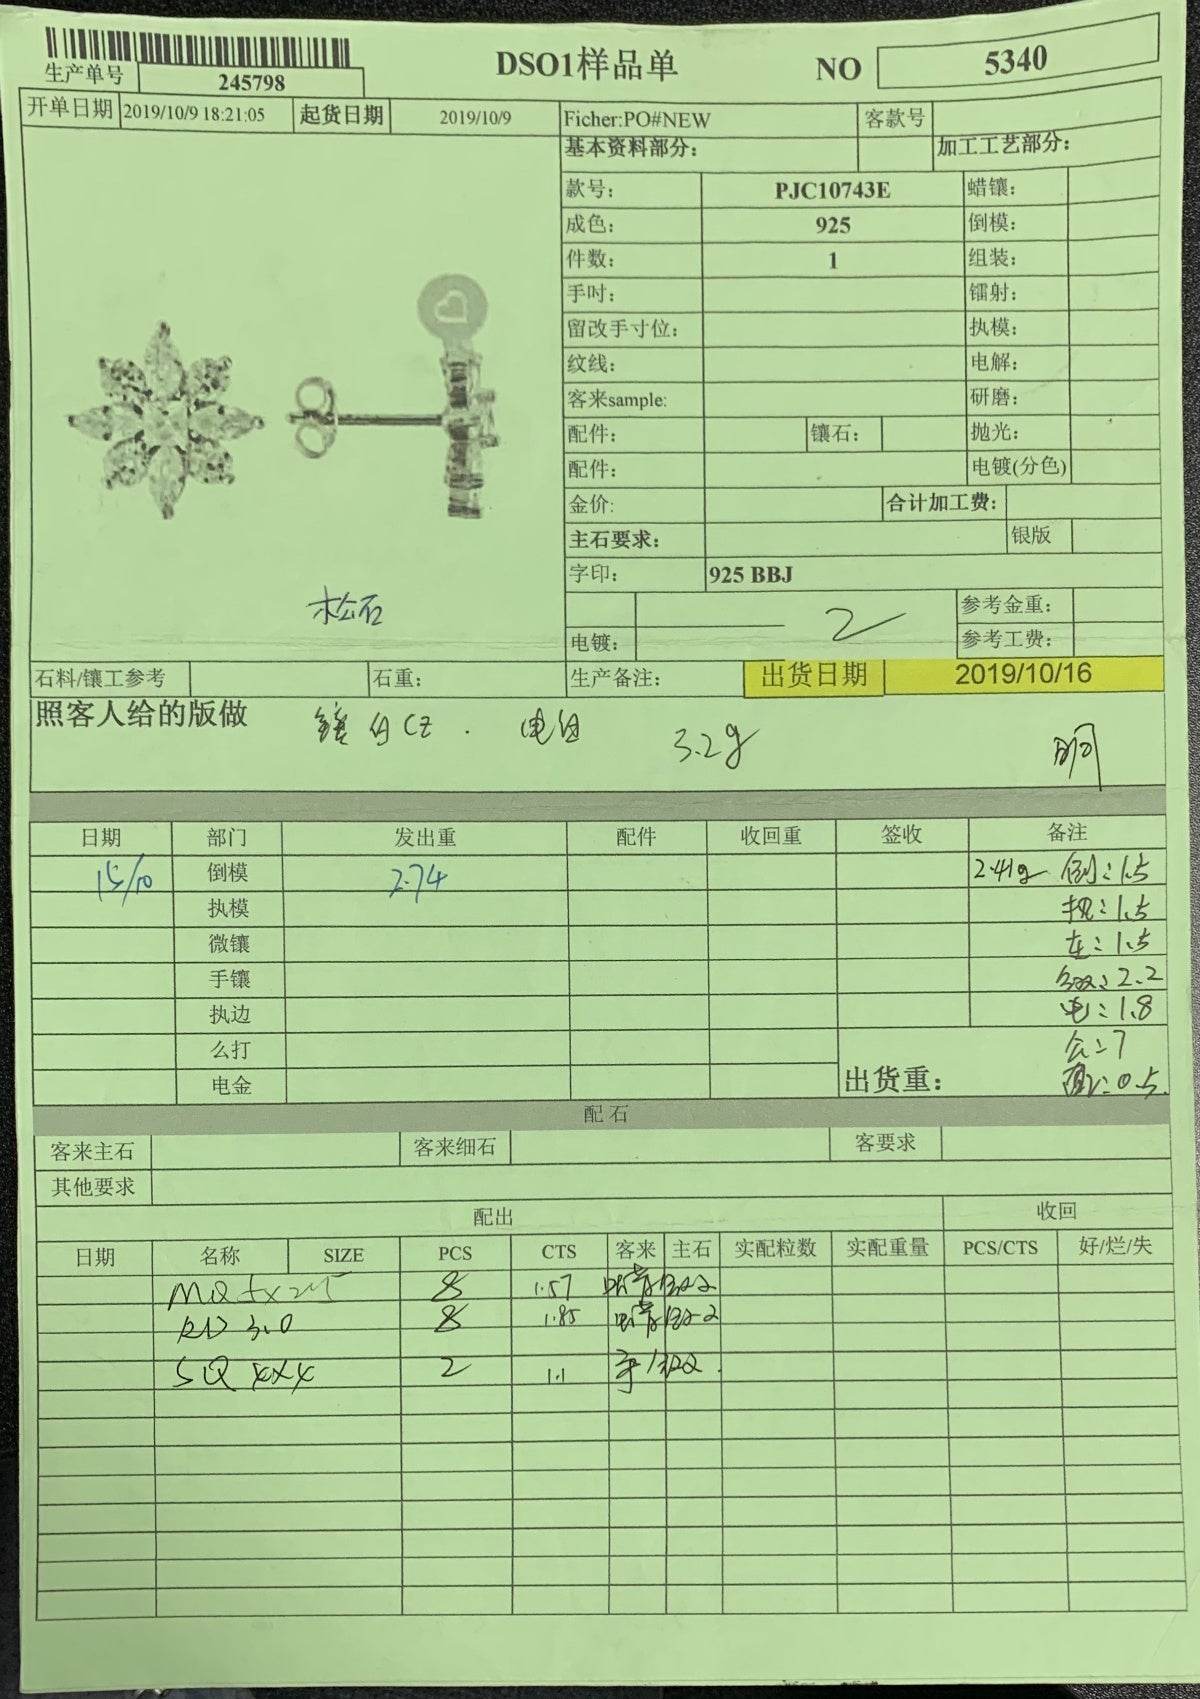 DSO1样品单 NO 5340
生产单号 245798
开单日期 2019/10/9 18:21:05 起货日期 2019/10/9 Ficher:PO#NEW 客款号
基本资料部分: 加工工艺部分:
款号: PJC10743E 蜡镶:
成色: 925 倒模:
件数: 1 组装:
手吋: 镭射:
留改手寸位: 执模:
纹线: 电解:
客来sample: 研磨:
配件: 镶石: 抛光:
配件: 电镀(分色)
金价: 合计加工费:
主石要求: 银版
字印: 925 BBJ
松石
2 参考金重:
电镀: 参考工费:
石料/镶工参考 石重: 生产备注: 出货日期 2019/10/16
照客人给的版做 镶白CZ. 电白 3.2g
日期 部门 发出重 配件 收回重 签收 备注
15/10 倒模 2.74 2.41g 倒:1.5
执模 执:1.5
微镶 车:1.5
手镶 2.2
执边 电:1.8
么打 7
电金 出货重: 0.5
配 石
客来主石 客来细石 客要求
其他要求
配出 收回
日期 名称 SIZE PCS CTS 客来 主石 实配粒数 实配重量 PCS/CTS 好/烂/失
MQ 5x2.5 8 1.57
RD 3.0 8 1.85
SQ 4x4 2 1.1